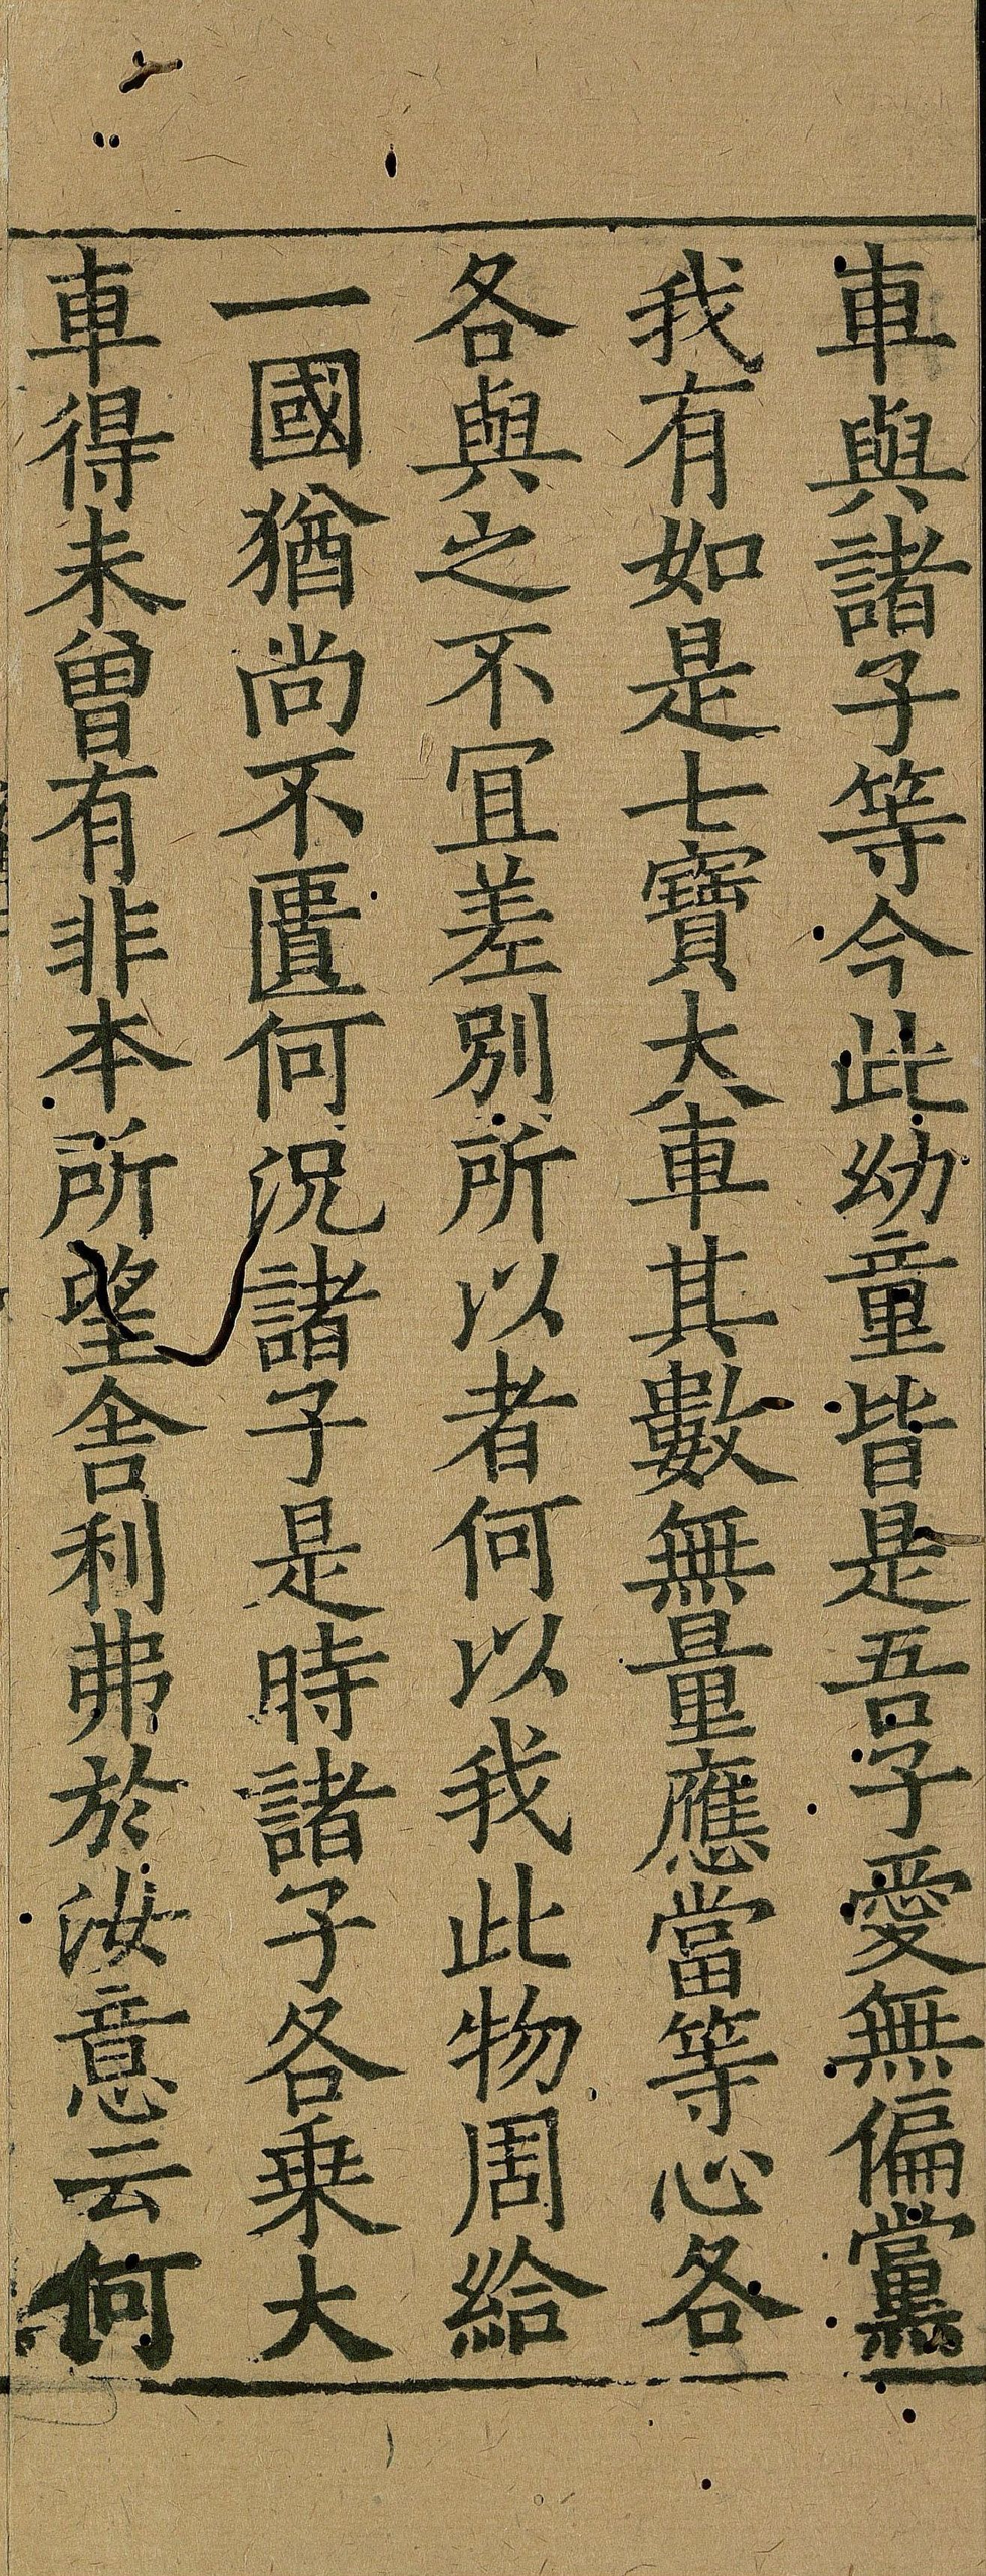 車與諸子等今此幼童皆是吾子愛無偏黨
我有如是七寶大車其數無量應當等心各
各與之不冝差別所以者何以我此物周給
一國猶尚不匱何況諸子是時諸子各乗大
車得未曾有非本所望舎利弗於汝意云何